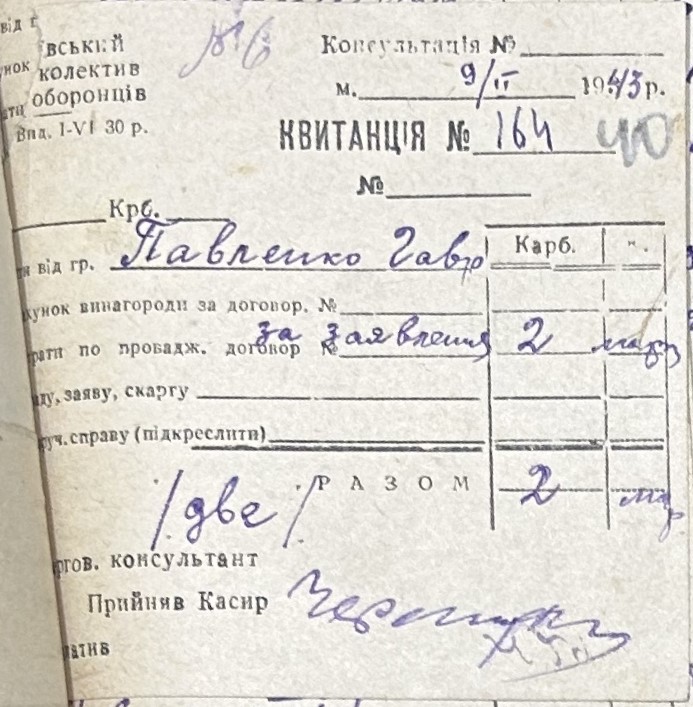 від г
вський Консультація №
нок колектив
м. 9/II 1943 р.
оборонців
Вид. I-VI 30 р.
КВИТАНЦІЯ № 164 40
№
Крб.
ти від гр. Павленко Гавр Карб. к.
хунок винагороди за договор. №
рати по провадж. договор № за заявления 2 мар
ду, заяву, скаргу
руч. справу (підкреслити)
РАЗОМ 2 мар
/две/
ргов. консультант
Прийняв Касир
латив